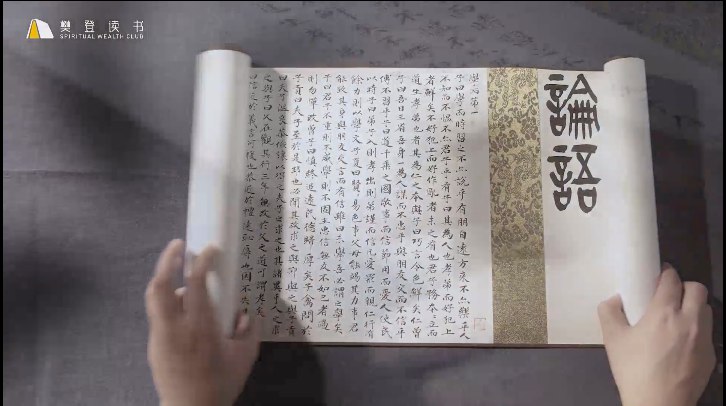 樊登读书
SPIRITUAL WEALTH CLUB
論語
學而第一
子曰學而時習之不亦說乎有朋自遠方來不亦樂乎人
不知而不慍不亦君子乎有子曰其為人也孝弟而好犯上
者鮮矣不好犯上而好作亂者未之有也君子務本本立而
道生孝弟也者其為仁之本與子曰巧言令色鮮矣仁曾
子曰吾日三省吾身為人謀而不忠乎與朋友交而不信乎
傳不習乎子曰道千乘之國敬事而信節用而愛人使民
以時子曰弟子入則孝出則弟謹而信汎愛眾而親仁行有
餘力則以學文子夏曰賢賢易色事父母能竭其力事君
能致其身與朋友交言而有信雖曰未學吾必謂之學矣
子曰君子不重則不威學則不固主忠信無友不如己者過
則勿憚改曾子曰慎終追遠民德歸厚矣子禽問於
子貢曰夫子至於是邦也必聞其政求之與抑與之與子貢
曰夫子溫良恭儉讓以得之夫子之求之也其諸異乎人之求
之與子曰父在觀其行三年無改於父之道可謂孝矣
信近於義言可復也恭近於禮遠恥辱也因不失